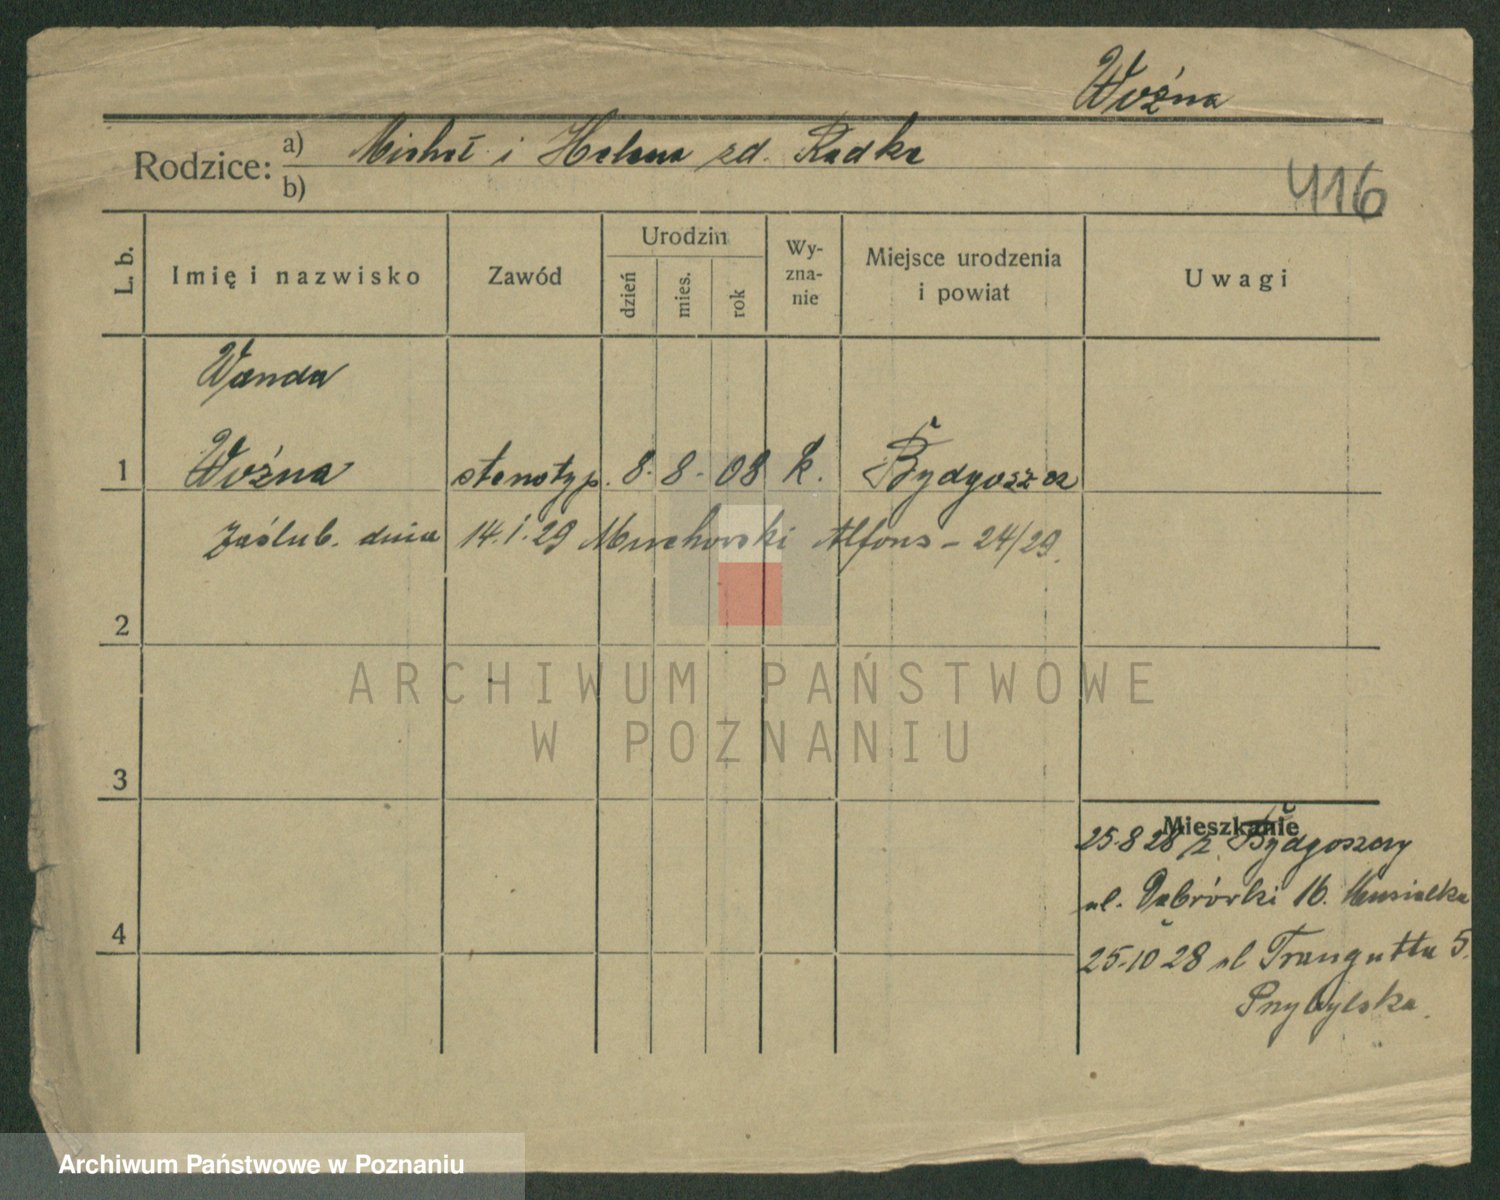 Woźna
Rodzice: a) Michał i Helena zd. Radke
b)
416
L. b.
Imię i nazwisko
Zawód
Urodzin
dzień
mies.
rok
Wy-
zna-
nie
Miejsce urodzenia
i powiat
Uwagi
Wanda
1 Woźna stenotyp. 8. 8. 08 k. Bydgoszcz
Zaślub. dnia 14.1.29 Murchowski Alfons - 24/29.
2
ARCHIWUM PAŃSTWOWE
W POZNANIU
3
Mieszkanie
25.8 28 z Bydgoszczy
ul. Dąbrówki 16. Musialka
4
25.10 28 ul Traugutta 5.
Przybylska.
Archiwum Państwowe w Poznaniu